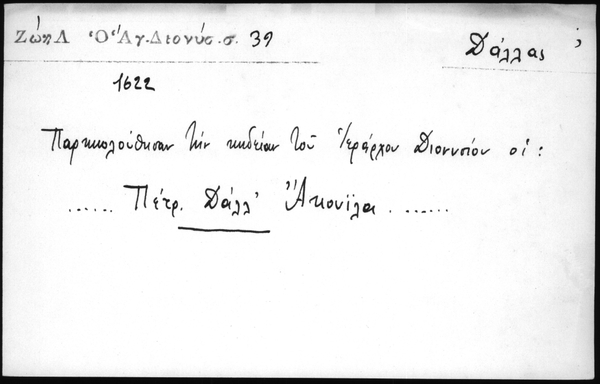 Ζώη Λ Ὁ Ἅγ. Διονύσ. σ. 39
Δάλλας
1622
Παρηκολούθησαν τὴν κηδείαν τοῦ Ἱεράρχου Διονυσίου οἱ:
...... Πέτρ. Δάλλ' Ἀκουΐλα .......